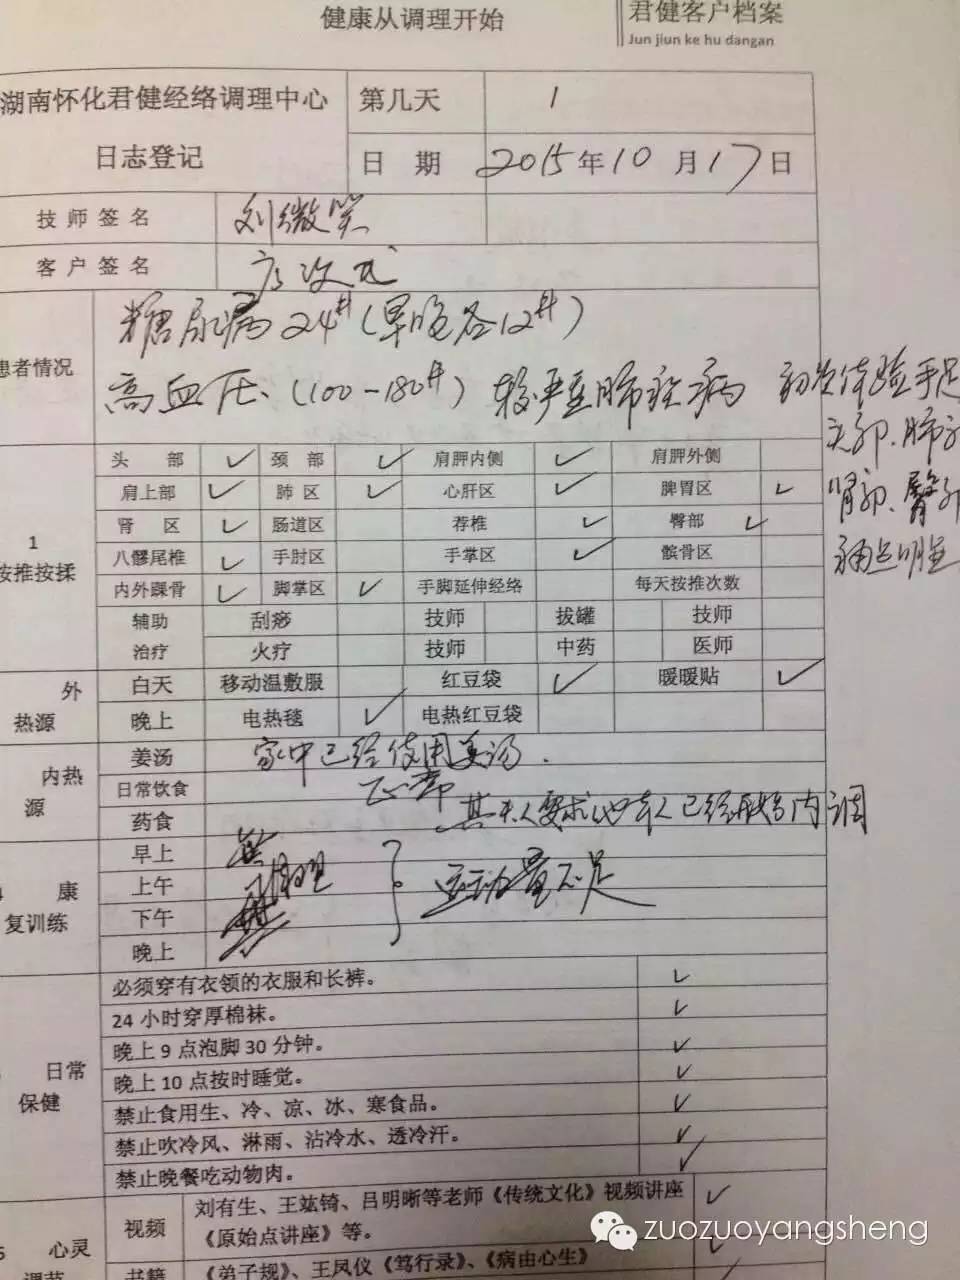 健康从调理开始
君健客户档案
Jun jiun ke hu dangan
湖南怀化君健经络调理中心
日志登记
第几天 1
日 期 2015年10月17日
技师签名 刘微笑
客户签名
患者情况
糖尿病24# (早晚各12#)
高血压 (100-180#) 较严重肺 病 初次体验手足
头部、肺部
肾部、臀部
痛点明显
1
按推按揉
头 部 ✓ 颈 部 ✓ 肩胛内侧 ✓ 肩胛外侧
肩上部 ✓ 肺 区 ✓ 心肝区 ✓ 脾胃区 ✓
肾 区 ✓ 肠道区 荐椎 ✓ 臀部 ✓
八髎尾椎 ✓ 手肘区 手掌区 ✓ 髌骨区
内外踝骨 ✓ 脚掌区 ✓ 手脚延伸经络 每天按推次数
辅助 刮痧 技师 拔罐 技师
治疗 火疗 技师 中药 医师
外
热源
白天 移动温敷服 红豆袋 ✓ 暖暖贴 ✓
晚上 电热毯 ✓ 电热红豆袋
内热
源
姜汤 家中已经使用姜汤.
日常饮食 正常
药食 其夫人要求他本人已经开始内调
康
复训练
早上
上午
下午
晚上
运动量不足
日常
保健
必须穿有衣领的衣服和长裤。 ✓
24小时穿厚棉袜。 ✓
晚上9点泡脚30分钟。 ✓
晚上10点按时睡觉。 ✓
禁止食用生、冷、凉、冰、寒食品。 ✓
禁止吹冷风、淋雨、沾冷水、透冷汗。 ✓
禁止晚餐吃动物肉。 ✓
心灵
调节
视频 刘有生、王竑锜、吕明晰等老师《传统文化》视频讲座 ✓
《原始点讲座》等。
书籍 《弟子规》、王凤仪《笃行录》、《病由心生》 ✓
zuozuoyangsheng